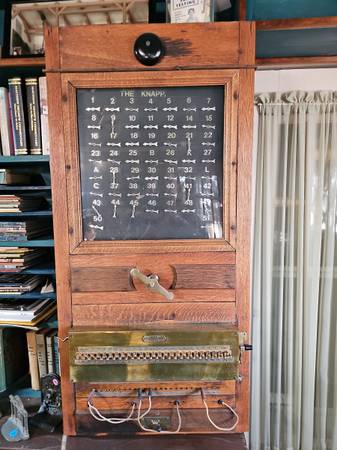 THE KNAPP.
1 2 3 4 5 6 7
8 9 10 11 12 14 15
16 17 18 19 20 21
23 24 25 B 26 K 27
A 28 29 30 31 32 L
C 37 38 39 40 41 42
43 44 45 46 47 48 49
50 51